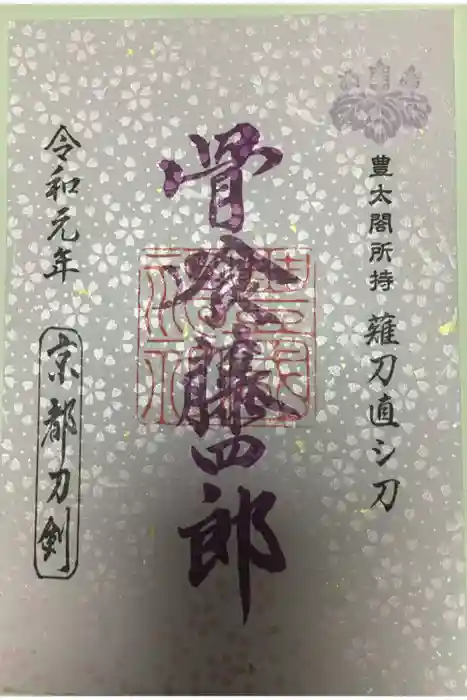 豊太閤所持 薙刀直シ刀
骨喰藤四郎
令和元年 京都刀剣